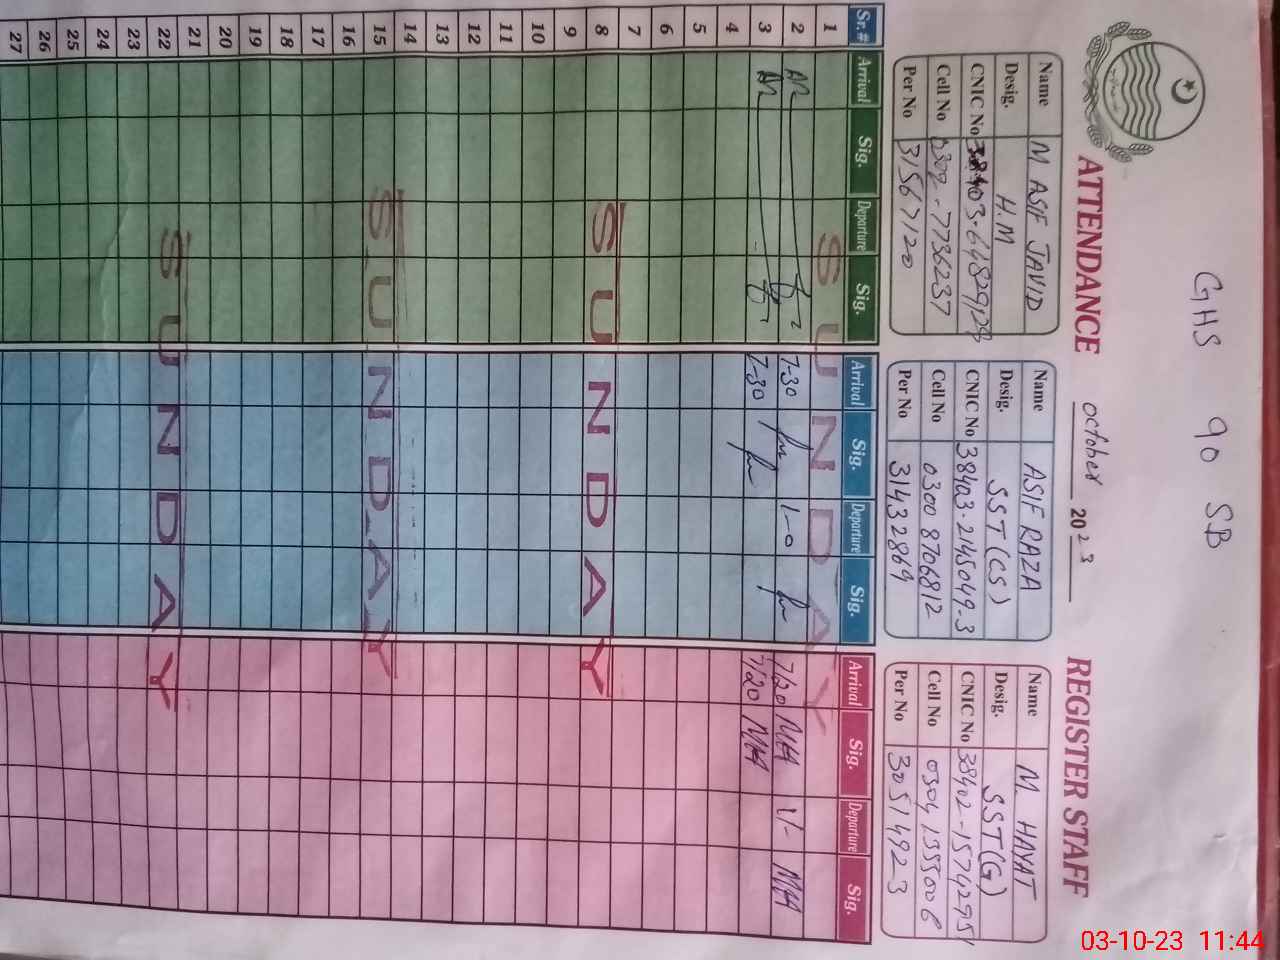 GHS 90 SB
ATTENDANCE October 2023 REGISTER STAFF
Name M ASIF JAVID
Desig. H.M
CNIC No
Cell No 0302-7736237
Per No 31567120
Name ASIF RAZA
Desig. SST (CS)
CNIC No 38403-2145049-3
Cell No 0300 8706812
Per No 31432869
Name M. HAYAT
Desig. SST(G)
CNIC No
Cell No
Per No 30514923
Sr.# Arrival Sig. Departure Sig. Arrival Sig. Departure Sig. Arrival Sig. Departure Sig.
1 SUNDAY
2 7-30 1-0 7/20 MH 1/- MH
3 7-30 7/20 MH
4
5
6
7
8 SUNDAY
9
10
11
12
13
14
15 SUNDAY
16
17
18
19
20
21
22 SUNDAY
23
24
25
26
27
03-10-23 11:44